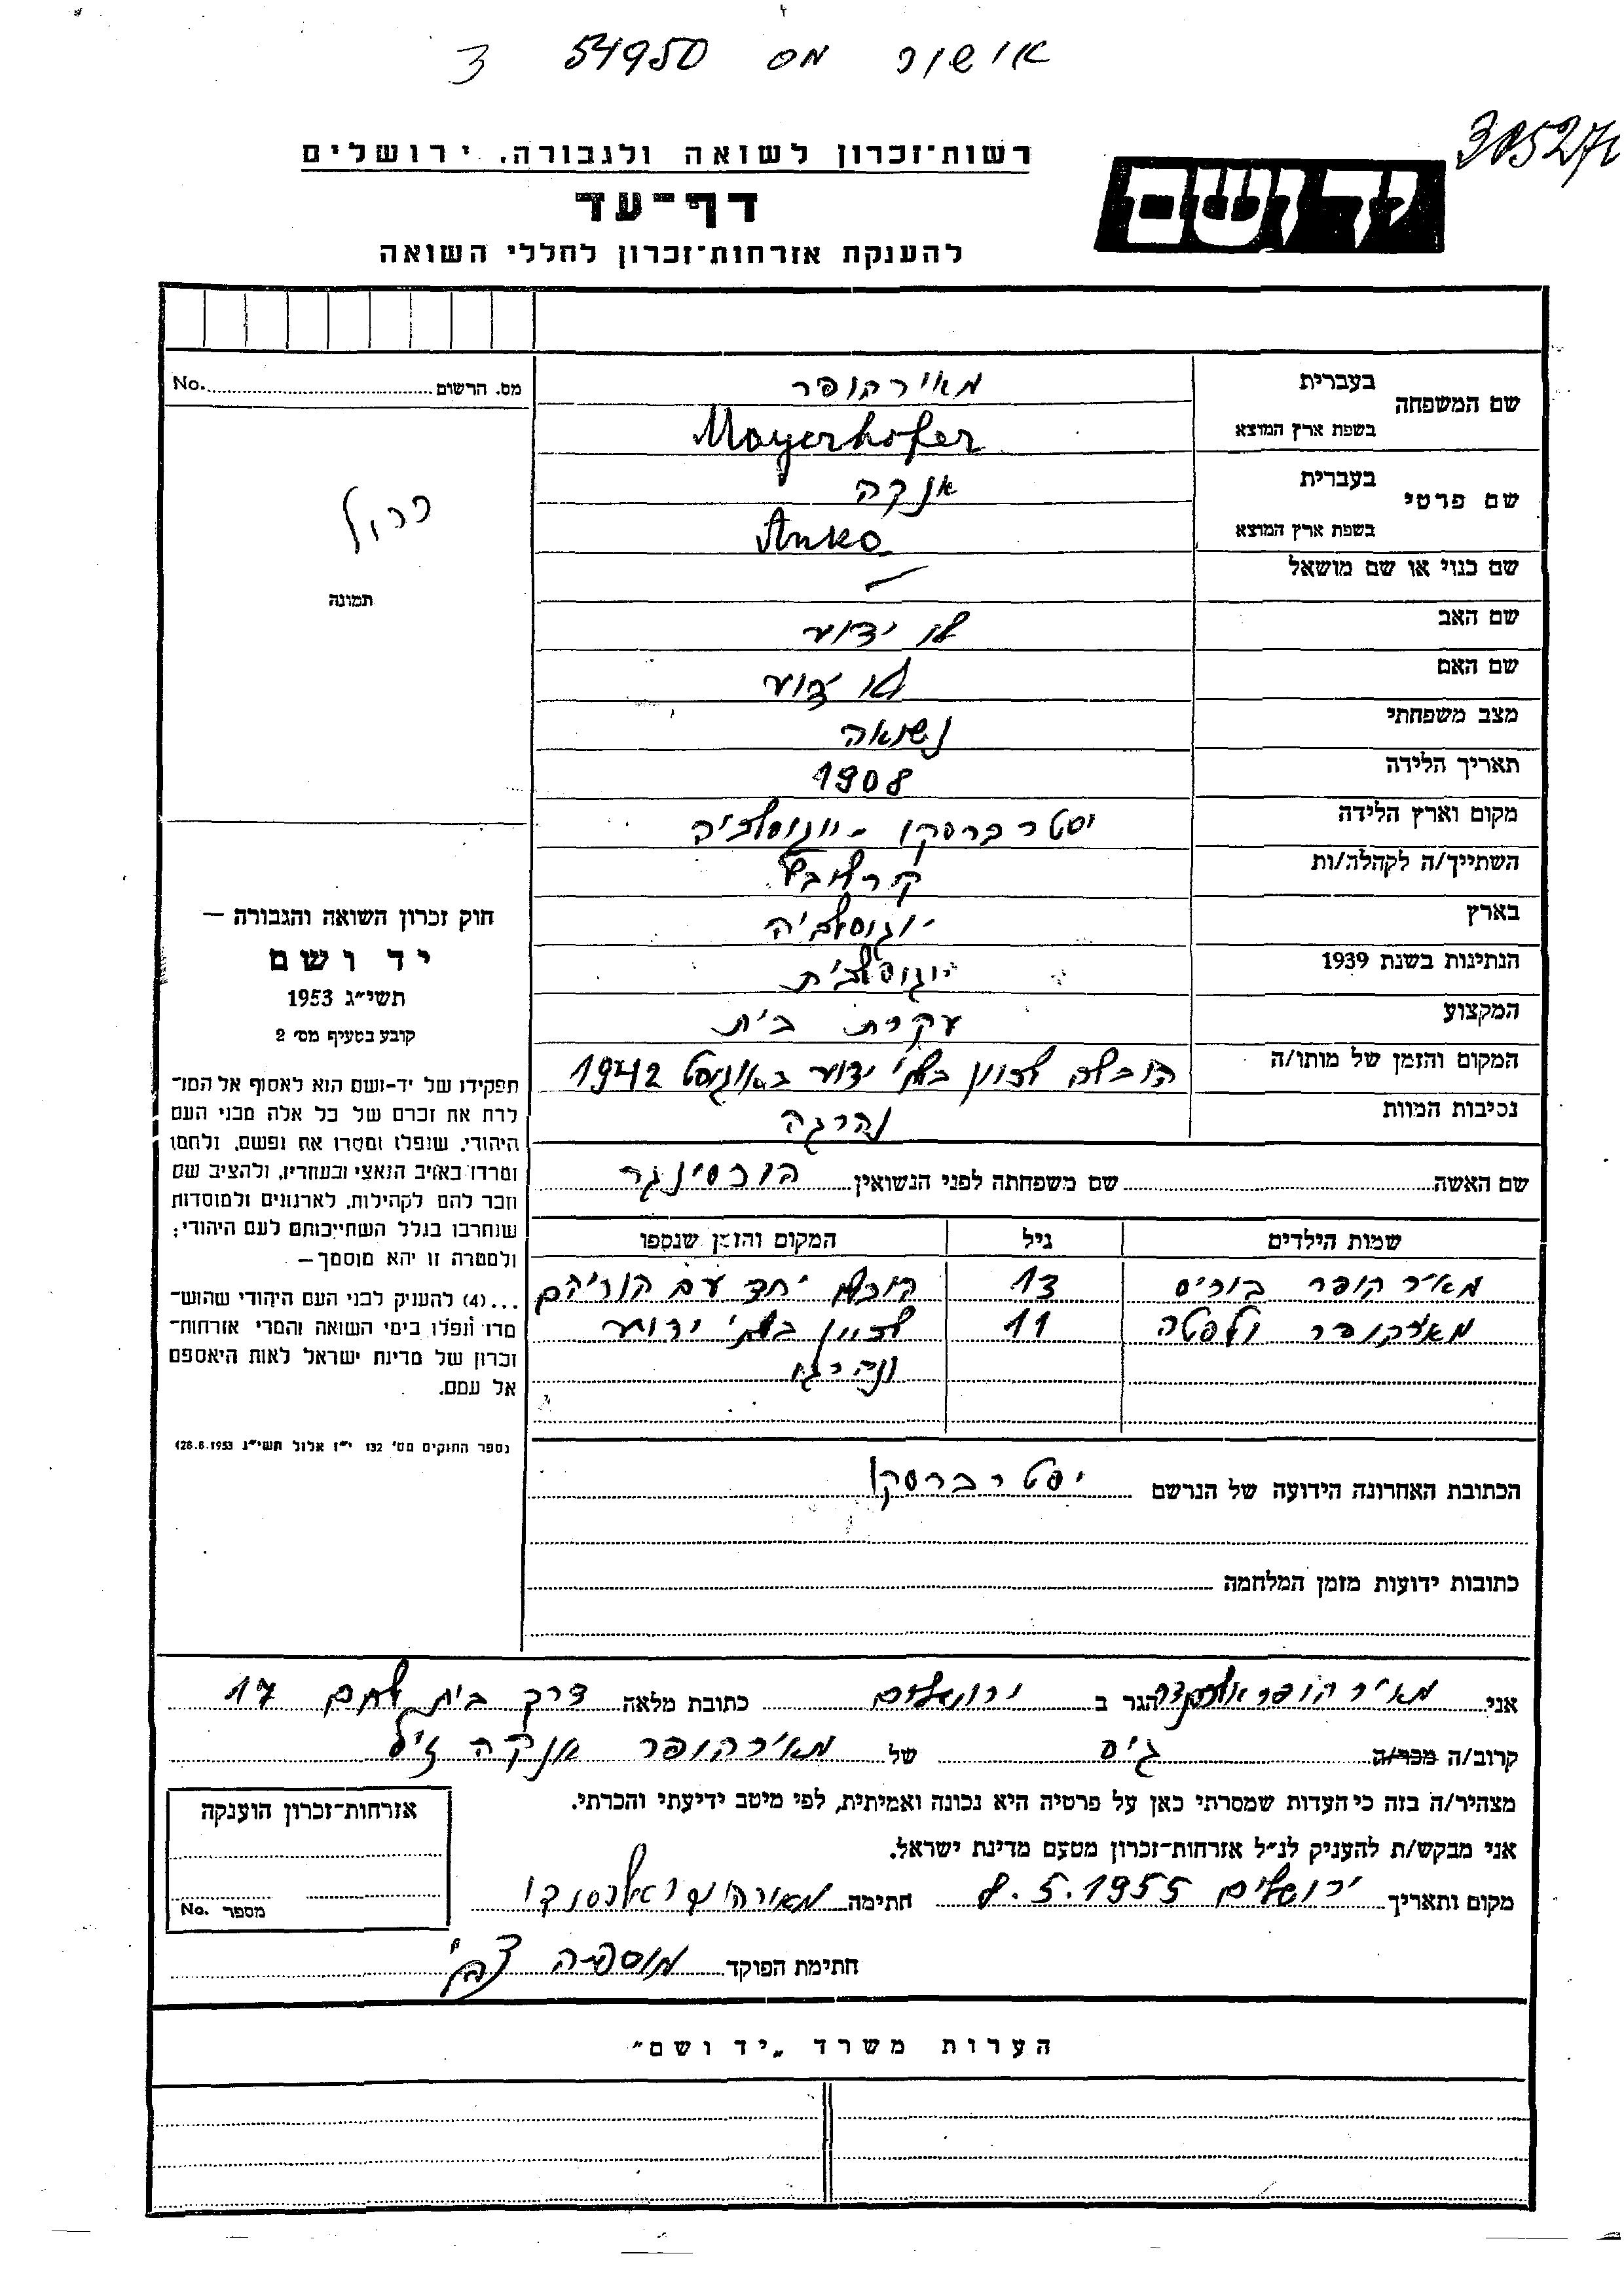 אישור מס 54950 3
30527
רשות־זכרון לשואה ולגבורה, ירושלים
ידושם
דף־עד
להענקת אזרחות־זכרון לחללי השואה
מס. הרשום No.
שם המשפחה
בעברית מאיר הופר
בשפת ארץ המוצא Mayerhofer
שם פרטי
בעברית אנקה
בשפת ארץ המוצא Anka
שם כנוי או שם מושאל —
שם האב לו ידוע
שם האם לו ידוע
מצב משפחתי נשואה
תאריך הלידה 1908
מקום וארץ הלידה יסטרברסקו - יוגוסלביה
השתייך/ה לקהלה/ות קרלובץ
בארץ יוגוסלביה
הנתינות בשנת 1939 יוגוסלבית
המקצוע עקרת בית
המקום והזמן של מותו/ה הובלה לכוון בלתי ידוע באוגוסט 1942
נסיבות המוות נהרגה
שם האשה שם משפחתה לפני הנשואין
שמות הילדים גיל המקום והזמן שנספו
מאיר הופר בוריס 13 הובלו יחד עם הוריהם
מאירהופר 11 לכיוון בלתי ידוע
ונהרגו
הכתובת האחרונה הידועה של הנרשם יסטרברסקו
כתובות ידועות מזמן המלחמה
תמונה
חוק זכרון השואה והגבורה —
יד ושם
תשי״ג 1953
קובע בסעיף מס׳ 2
תפקידו של יד-ושם הוא לאסוף אל המו־
לדת את זכרם של כל אלה מבני העם
היהודי, שנפלו ומסרו את נפשם, נלחמו
ומרדו באויב הנאצי ובעוזריו, ולהציב שם
וזכר להם לקהילות, לארגונים ולמוסדות
שנחרבו בגלל השתייכותם לעם היהודי;
ולמטרה זו יהא מוסמך —
...(4) להעניק לבני העם היהודי שהוש־
מדו ונפלו בימי השואה והמרי אזרחות־
זכרון של מדינת ישראל לאות היאספם
אל עמם.
(ספר החוקים מס׳ 132 י״ז אלול תשי״ג 28.8.1953)
אני מאיר הופר אלכסנדר הגר ב ירושלים כתובת מלאה דרך בית לחם 17
קרוב/ה מכר/ה גיס של מאירהופר אנקה ז״ל
מצהיר/ה בזה כי העדות שמסרתי כאן על פרטיה היא נכונה ואמיתית, לפי מיטב ידיעתי והכרתי.
אני מבקש/ת להעניק לנ״ל אזרחות־זכרון מטעם מדינת ישראל.
מקום ותאריך ירושלים 8.5.1955 חתימה מאירהופר אלכסנדר
חתימת הפוקד
אזרחות־זכרון הוענקה
מספר No.
הערות משרד „יד ושם״